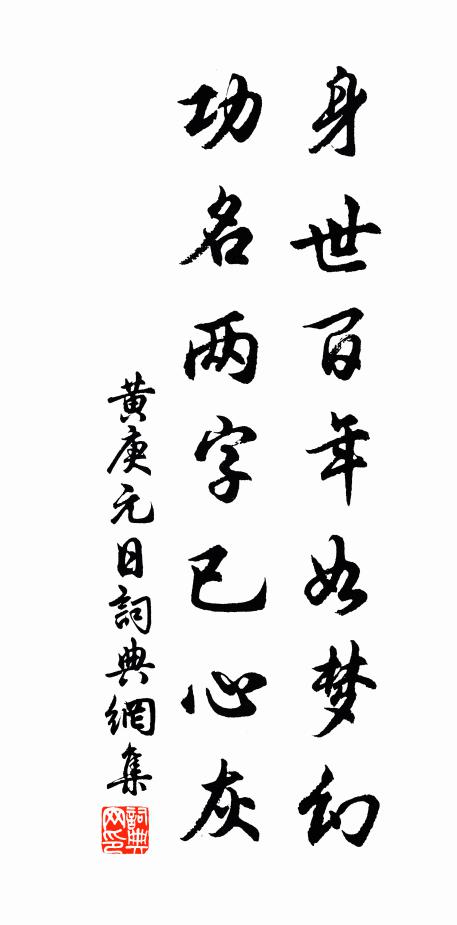 身世百年如梦幻
功名两字已心灰
黄庚元日詞典網集
詞典网印